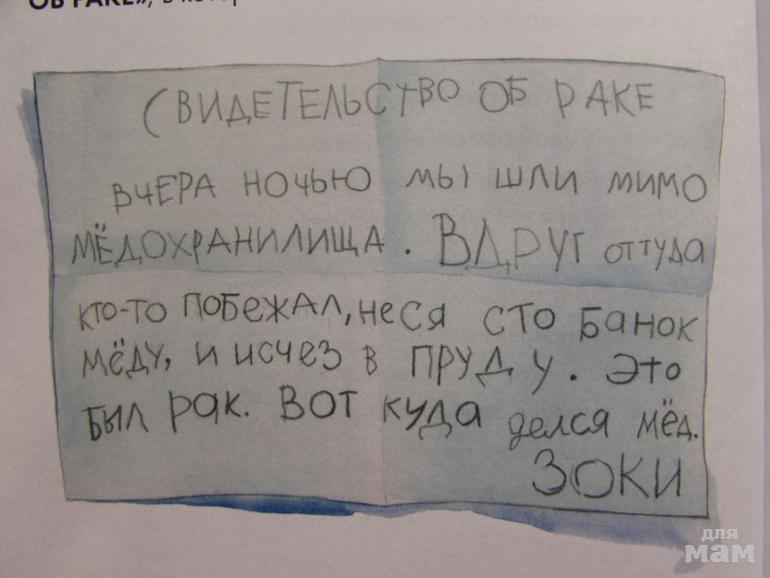 ОБ РАКЕ», в котор
СВИДЕТЕЛЬСТВО ОБ РАКЕ
ВЧЕРА НОЧЬЮ МЫ ШЛИ МИМО
МЁДОХРАНИЛИЩА. ВДРУГ ОТТУДА
КТО-ТО ПОБЕЖАЛ, НЕСЯ СТО БАНОК
МЁДУ, И ИСЧЕЗ В ПРУДУ. ЭТО
БЫЛ РАК. ВОТ КУДА ДЕЛСЯ МЁД.
ЗОКИ
для
мам